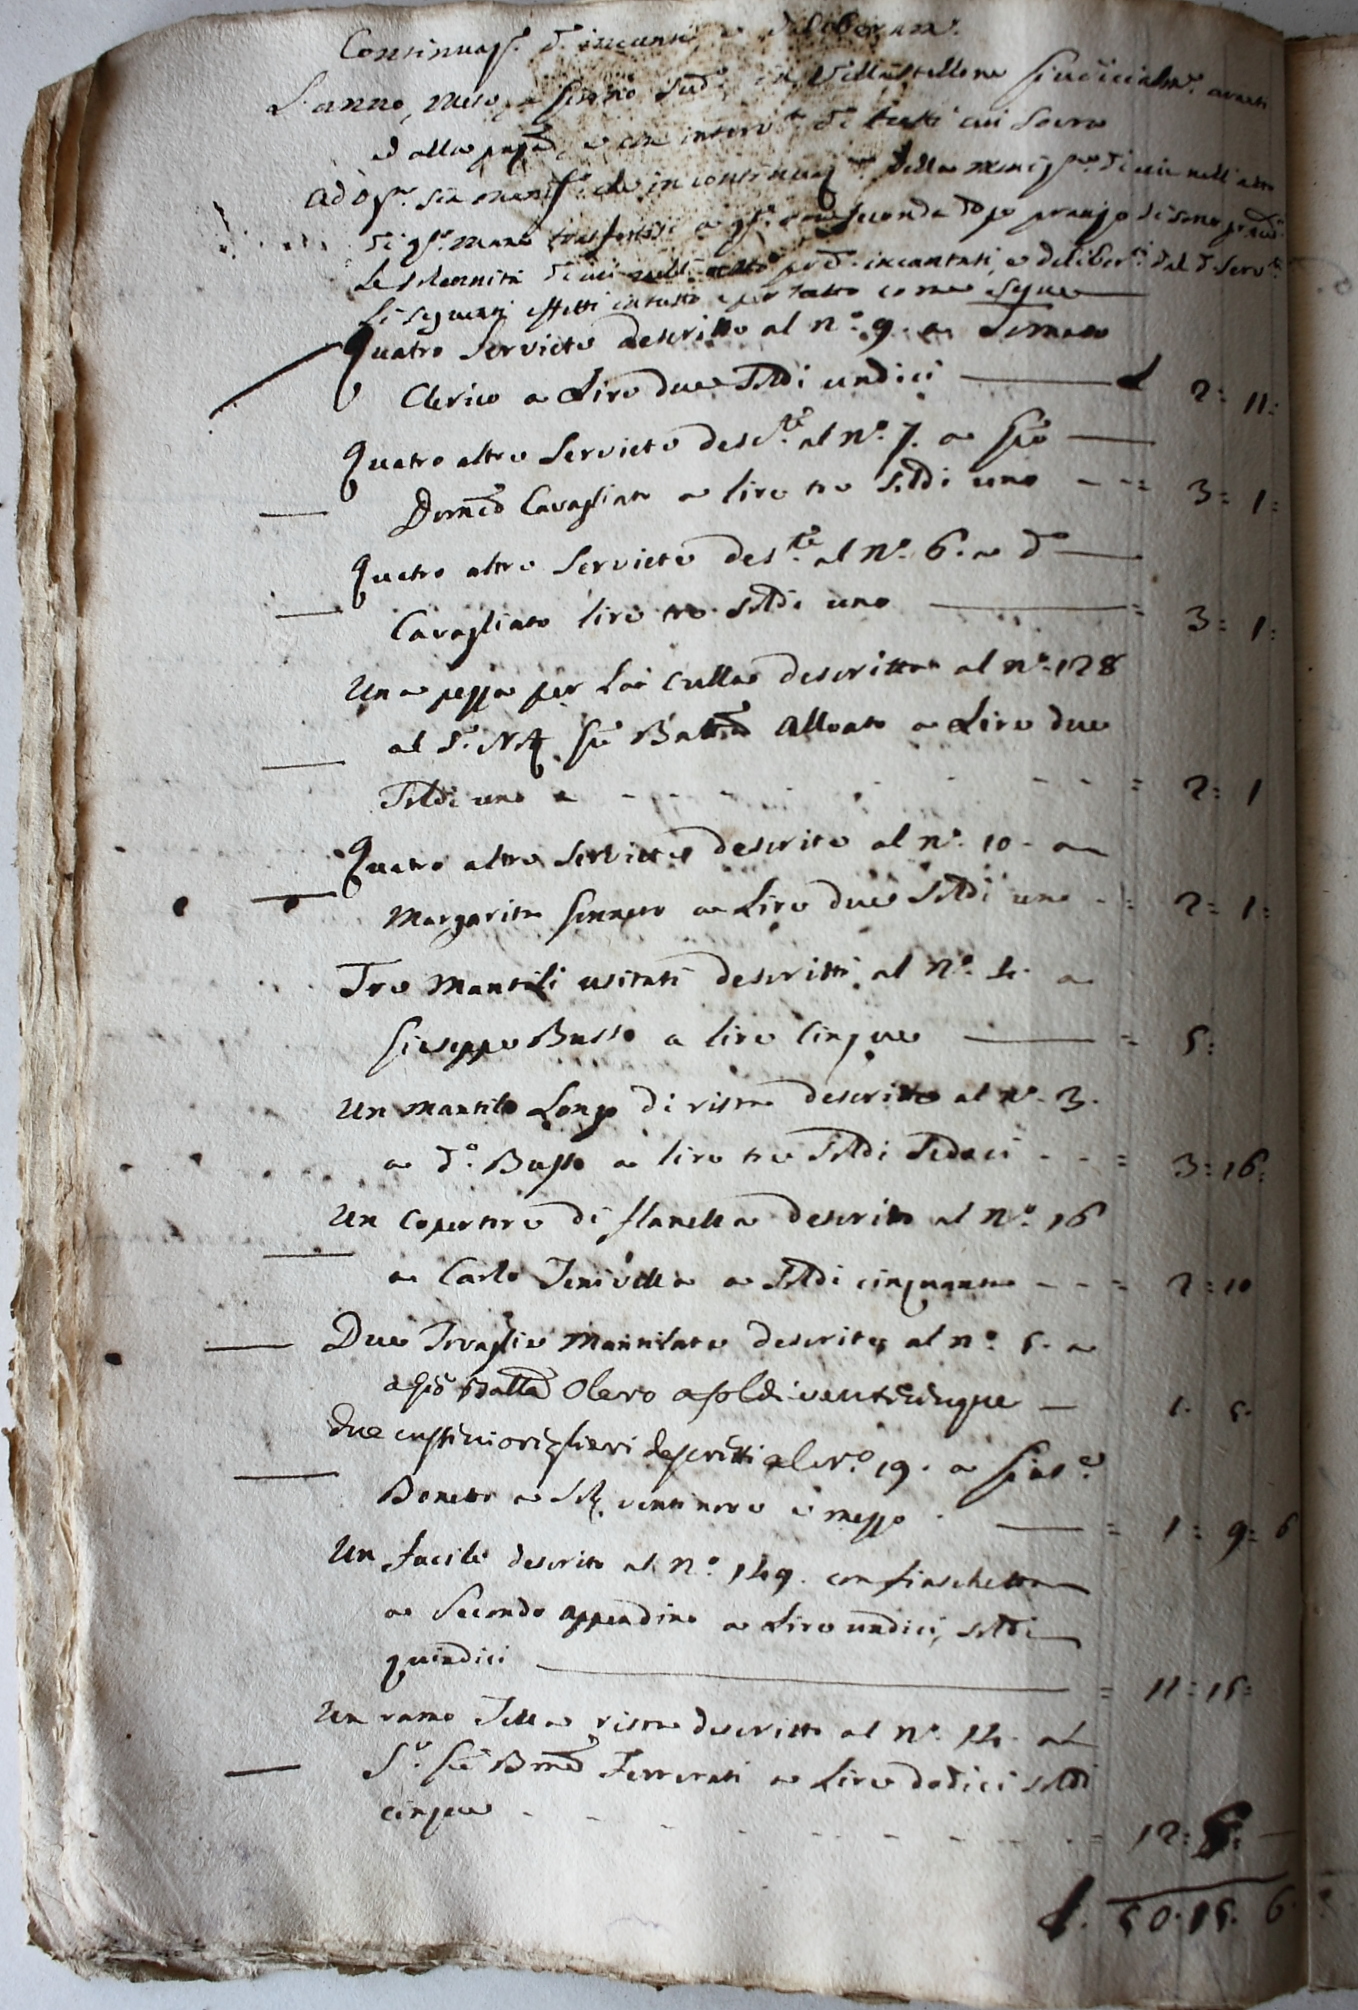 Continuaz.e d'incanti e deliberam.ti
L'anno, mese, e giorno sud.i in Villastellone giudicialm.e avanti
ed alla pnza, e con interv.to di tutti cui sovra
Ad og.n sia manif.o che in continuaz.e della di cui nell'atto
di q.sta mane trasfertisi
le solennità di cui nell'atto pred.o incantati, e deliber.ti dal d.o Serv.te
li seguenti effetti in tutto e per tutto come segue
Quatro Serviete descritte al n.o 9. a
Clerico a Lire due Soldi undici L 2: 11:
Quatro altre Serviete desc.te al n.o 7. a Gio
Dom.co Cavagliato a lire tre Soldi uno = 3: 1:
Quatro altre Serviete des.te al n.o 6. a d.o
Cavagliato lire tre Soldi uno = 3: 1:
Una pezza per la Culla descritta al n.o 128
al S.r Not. Gio Batta Alloato a Lire due
Soldi uno = 2: 1
Quatro altre Serviete descrite al n.o 10. a
Margarita a Lire due Soldi uno = 2: 1:
Tre Mantili usitati descritti al n.o 4. a
Giuseppe Busso a lire Cinque = 5:
Un Mantile Longo di rista descritto al n.o 3.
a d.o Busso a lire tre Soldi Sedeci = 3: 16:
Un Copertore di flanella descrito al n.o 16
a Carlo Tenivella a Soldi cinquanta = 2: 10
Due Tovaglie descrite al n.o 5. a
a Gio Batta Olero a soldi venticinque 1. 5.
due cussini origlieri descritti al n.o 19. a Gius.e
Bonetto a Sol. ventinove e mezzo = 1: 9: 6
Un fucile descrito al n.o 149. con fiaschetta
a Secondo Appendino a Lire undici, soldi
quindici = 11: 15:
Un ramo Tella rista descritto al n.o 14. al
S.r Gio Ferrerati a Lire dodici soldi
cinque = 12: 5:
L. 50. 15. 6.